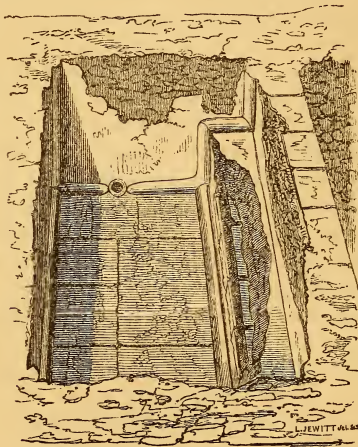 L.JEWITT del. & sc.